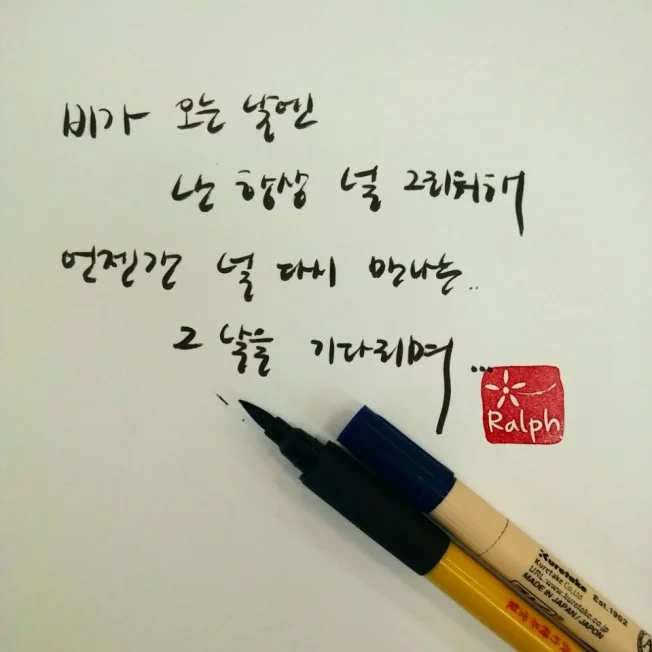 비가 오는 날엔
난 항상 널 그리워해
언젠간 널 다시 만나는..
그 날을 기다리며...
Ralph
Kuretake Est.1902
Kuretake Co.Ltd.
URL www.kuretake.co.jp
MADE IN JAPAN/JAPON